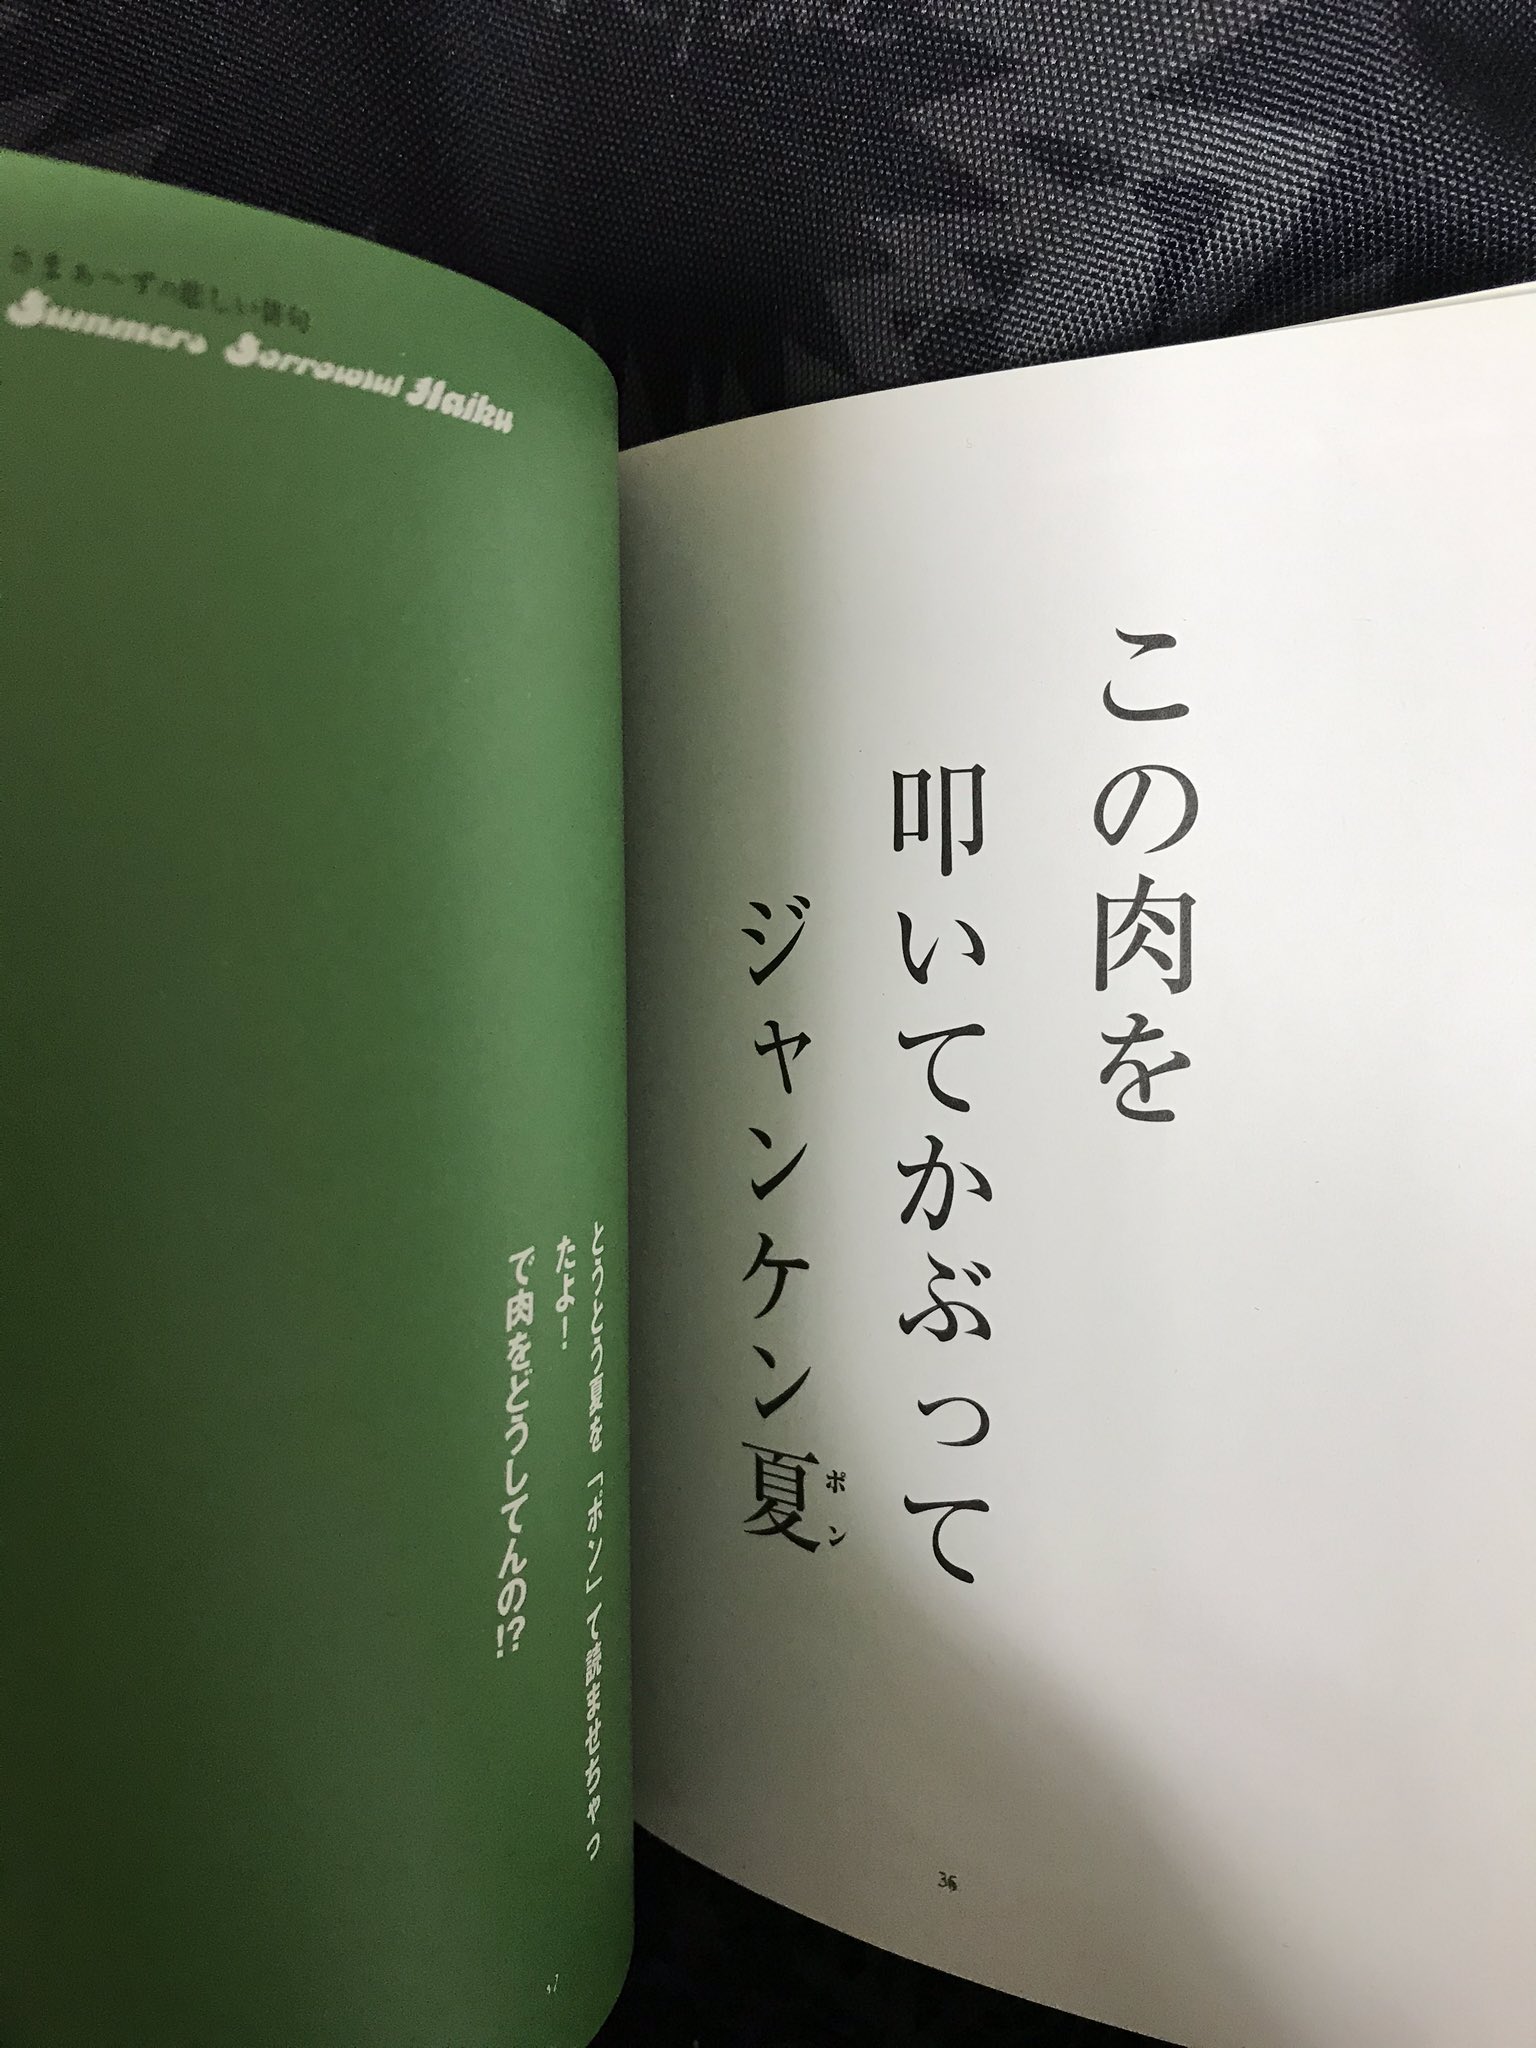 この肉を
叩いてかぶって
ジャンケン夏
ポン
36
さまぁ〜ずの悲しい俳句
Summers Sorrowful Haiku
とうとう夏を「ポン」て読ませちゃっ
たよ！
で肉をどうしてんの!?
37